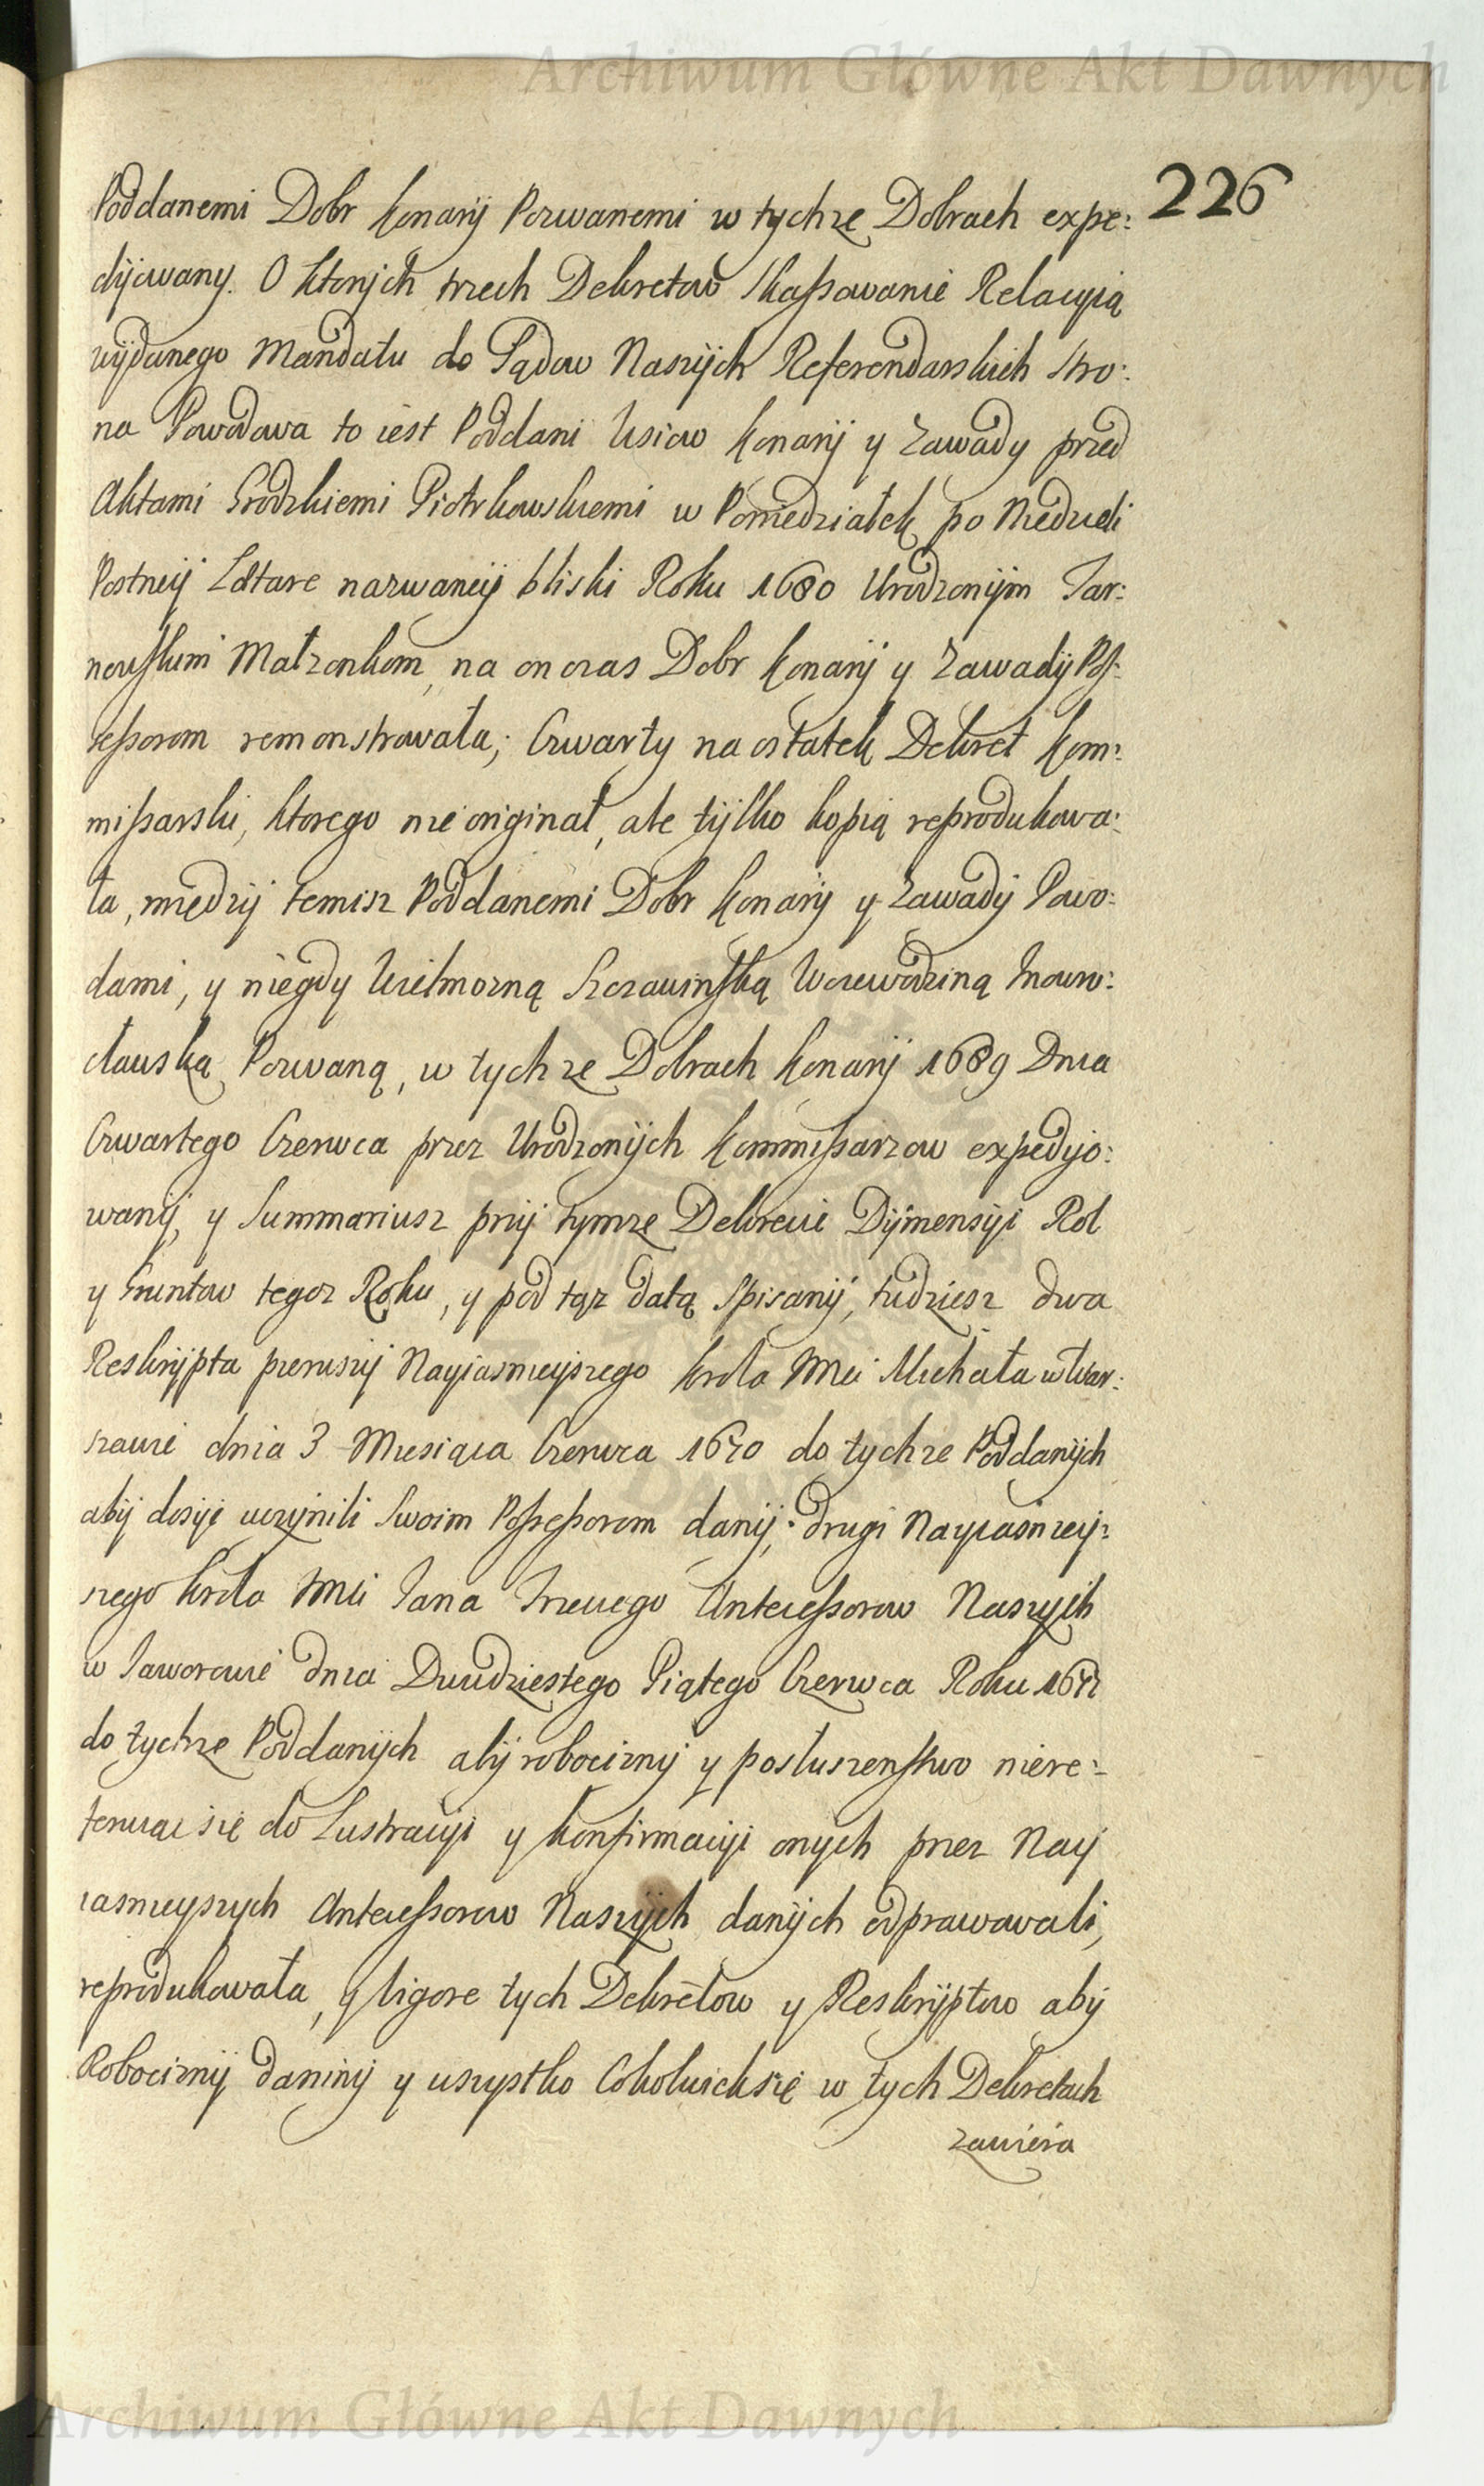 Archiwum Główne Akt Dawnych
226
Poddanemi Dobr Konarÿ Pozwanemi w tychze Dobrach expe:
dÿiowany. O ktorÿch trzech Dekretow skassowanie Relacyią
wÿdanego Mandatu do Sądow Naszÿch Referendarskich Stro:
na Powodowa to iest Poddani Wsiow Konarÿ y Zawady przed
Aktami Grodzkiemi Piotrkowskiemi w Poniedziałek po Niedzieli
Postneÿ Lætare nazwaneÿ bliski Roku 1680 Urodzonÿm Tar:
nowskim Małzonkom, na onczas Dobr Konarÿ y Zawadÿ Pos:
sessorom remonstrowała; Czwarty na ostatek Dekret Kom:
missarski, ktorego nie originał, ale tÿlko kopią reprodukowa:
ła, międzÿ temisz Poddanemi Dobr Konarÿ y Zawadÿ Powo:
dami, y niegdy Wielmozną Szczawinską Woiewodziną Inowro:
cławską Pozwaną, w tychze Dobrach Konarÿ 1689 Dnia
Czwartego Czerwca przez Urodzonÿch Kommissarzow expedyio:
wanÿ, y Summariusz przÿ tymze Dekrecie Dÿmensÿi Rol
y Gruntow tegoz Roku, y pod tąz datą spisanÿ, tudziesz dwa
Reskrÿpta pierwszÿ Nayiasnieyszego Krola Jmci Michała w War:
szawie dnia 3 Miesiąca Czerwca 1670 do tychze Poddanÿch
abÿ dosÿć uczÿnili Swoim Possessorom danÿ; drugi Nayiasniey:
szego Krola Jmci Jana Trzeciego Antecessorow Naszÿch
w Jaworowie dnia Dwudziestego Piątego Czerwca Roku
do tychze Poddanÿch abÿ robociznÿ y posłuszenstwo niere:
feruiąc się do Lustracyi y Konfirmacyi onych przez Nay
iasnieyszych Antecessorow Naszÿch danÿch odprawowali,
reprodukowała, y vigore tych Dekretow y Reskrÿptow abÿ
Robociznÿ daninÿ y wszystko cokolwiek się w tych Dekretach
zawiera
Archiwum Główne Akt Dawnych